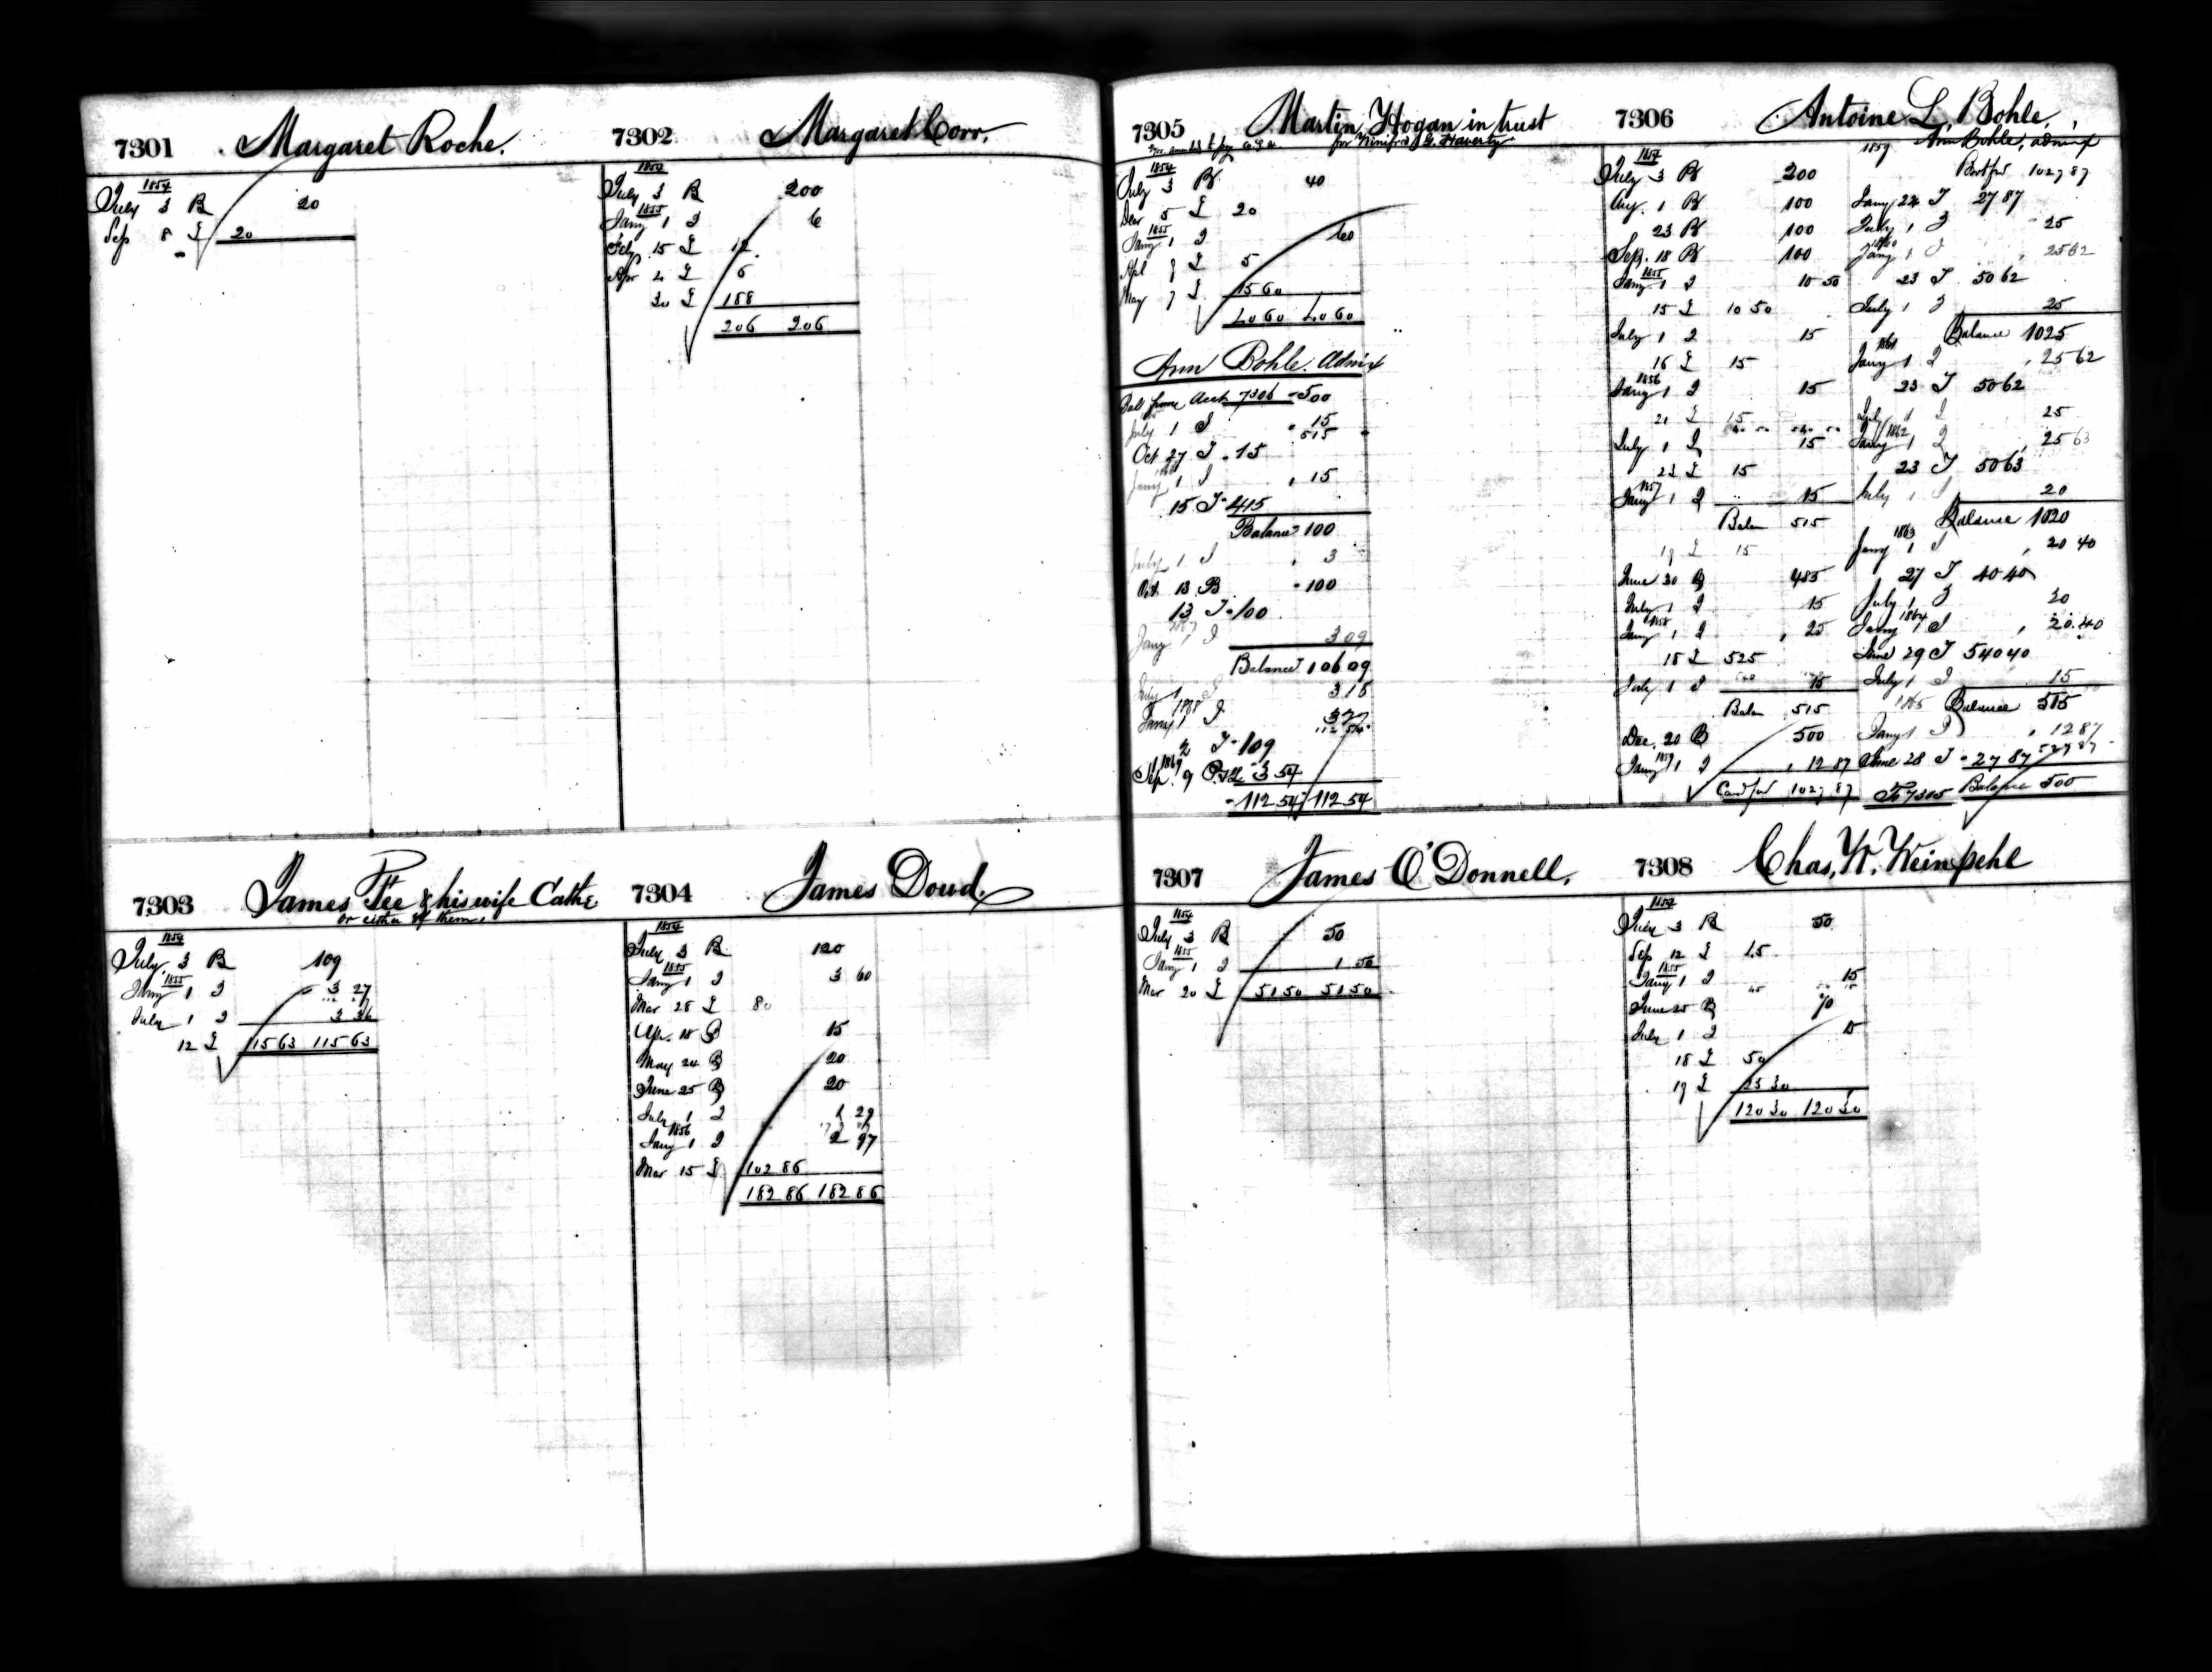 7301 Margaret Roche.
1854
July 3 B 20
Sep 8 £ 20
7302 Margaret Corr.
1854
July 3 B 200
1855
Jany 1 I 6
Feby 15 £ 12
Apr 2 £ 6
30 £ 188
206 206
7303 James Fee & his wife Cathe
or either of them.
1854
July 3 B 109
1855
Jany 1 I 3 27
July 1 I 3 36
12 £ 115 63 115 63
7304 James Doud.
1854
July 3 B 120
1855
Jany 1 I 3 60
Mar 28 £ 80
Apr. 18 B 15
May 24 B 20
June 25 B 20
July 1 I 1 29
1856
Jany 1 I 2 97
Mar 15 £ 102 86
182 86 182 86
7305 Martin Hogan in trust
for Winifred G. Haverty
1854
July 3 B 40
Decr 5 £ 20
1855
Jany 1 I 60
Apl 9 £ 5
May 7 £ 15 60
40 60 40 60
Ann Bohle. Admx
Bal from Acct 7306 500
July 1 I 15
515
Oct 27 I 15
Jany 1 I 15
15 I 415
Balance 100
July 1 I 3
Oct 13 B 100
13 I 100
Jany 1 I 3 09
Balance 106 09
July 1 I 3 18
1868
Jany 1 I 3 27
112 54
2 I 109
1869
Sep. 9 3 54
112 54 112 54
7306 Antoine L. Bohle.
Ann Bohle, admx
1854
July 3 B 200
Aug. 1 B 100
23 B 100
Sep. 18 B 100
1855
Jany 1 I 10 50
15 £ 10 50
July 1 I 15
16 £ 15
1856
Jany 1 I 15
21 £ 15
July 1 I 15
23 £ 15
1857
Jany 1 I 15
Balan 515
19 £ 15
June 30 B 485
July 1 I 15
1858
Jany 1 I 25
18 £ 525
July 1 I 15
Balan 515
Dec. 20 B 500
1859
Jany 1 I 12 87
Card fwd 1027 87
1859
Brot fwd 1027 87
Jany 24 I 27 87
July 1 I 25
1860
Jany 1 I 25 62
23 I 50 62
July 1 I 25
Balance 1025
1861
Jany 1 I 25 62
23 I 50 62
July 1 I 25
1862
Jany 1 I 25 63
23 I 50 63
July 1 I 20
Balance 1020
1863
Jany 1 I 20 40
27 I 40 40
July 1 I 20
1864
Jany 1 I 20.40
June 29 I 540 40
July 1 I 15
1865 Balance 515
Jany 1 I 12 87
527 87
June 28 I 27 87
To 7305 Balance 500
7307 James O'Donnell.
1854
July 3 B 50
1855
Jany 1 I 1 50
Mar 20 £ 51 50 51 50
7308 Chas. W. Weinpehl
1854
July 3 B 50
Sep 12 £ 1.5
1855
Jany 1 I 15
June 25 B 70
July 1 I 15
18 £ 50
19 £ 55 30
120 30 120 30